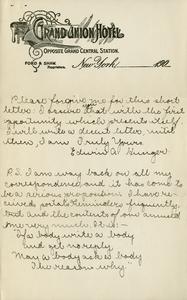 GRAND UNION HOTEL
OPPOSITE GRAND CENTRAL STATION.
FORD & SHAW,
Proprietors.
New York, 190
Please forgive me for this short
letter. I assure that with the first
oportunity which presents itself
I will write a decent letter until
then, I am Truly Yours
Edwin A.
P.S. I am way back on all my
correspondence and it has come to
be a serious proposition. I have re-
ceived postal reminders frequently,
but and the contents of one amused
me very much. It is:-
"If a body write a body
and get no reply
May a body ask a body
The reason why"